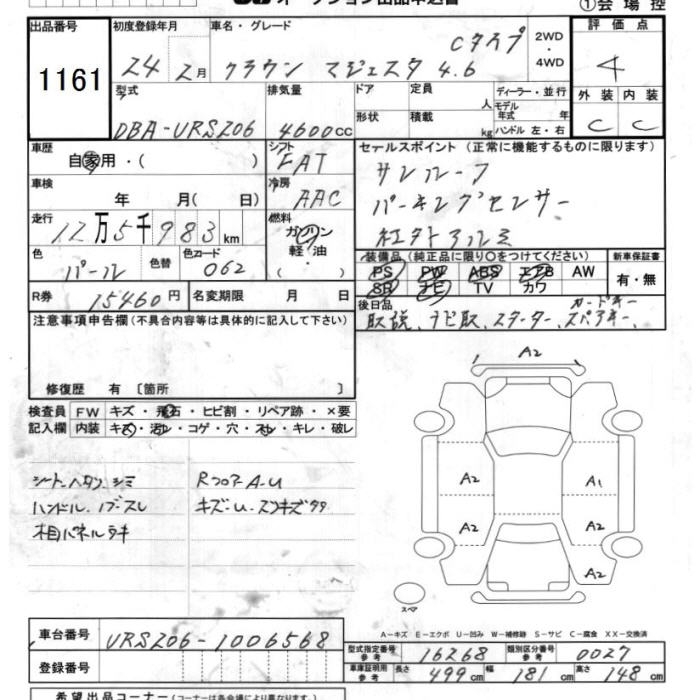 ①会場控
出品番号 初度登録年月 車名・グレード 評価点
1161 24年 2月 クラウン マジェスタ 4.6 Cタイプ 2WD ・ 4WD 4
型式 排気量 ドア 定員 人 ディーラー・並行 外装 内装
DBA-URS206 4600cc 形状 積載 kg モデル年式 年 ハンドル 左・右 C C
車歴 自家用・( ) シフト FAT セールスポイント (正常に機能するものに限ります)
車検 年 月( 日) 冷房 AAC サンルーフ
走行 12万5千983km 燃料 ガソリン 軽・油 ( ) パーキングセンサー
色 パール 色替 色コード 062 社外アルミ
装備品 (純正品に限り○をつけてください) 新車保証書
PS PW ABS エアB AW 有・無
SR ナビ TV カワ
R券 15460円 名変期限 月 日 後日品
取説、ナビ取、スターター、スペアキー、カードキー
注意事項申告欄(不具合内容等は具体的に記入して下さい)
修復歴 有 〔箇所 〕
検査員 FW キズ・飛石・ヒビ割・リペア跡・×要
記入欄 内装 キズ・汚レ・コゲ・穴・スレ・キレ・破レ
A2
シート、ハタン、シミ RフロアA-U
ハンドル、ノブスレ キズ-U、スリキズタタ
木目パネルラキ
A2 A1
A2 A2
A2
スペア
A-キズ E-エクボ U-凹み W-補修跡 S-サビ C-腐食 XX-交換済
車台番号 URS206-1006568
型式指定番号 参考 16268 類別区分番号 参考 0027
登録番号 車庫証明用 参考 長さ 499cm 幅 181cm 高さ 148cm
希望出品コーナー (コーナーは各会場により異なります)